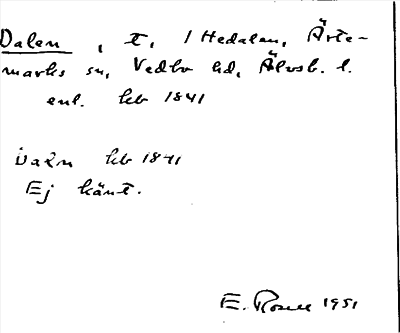 Dalen, t, 1 Hedalen, Ärte-
marks sn, Vedbo hd, Älvsb. l.
enl. hfl 1841
Daln hfl 1841
Ej känt.
E. Rosell 1951